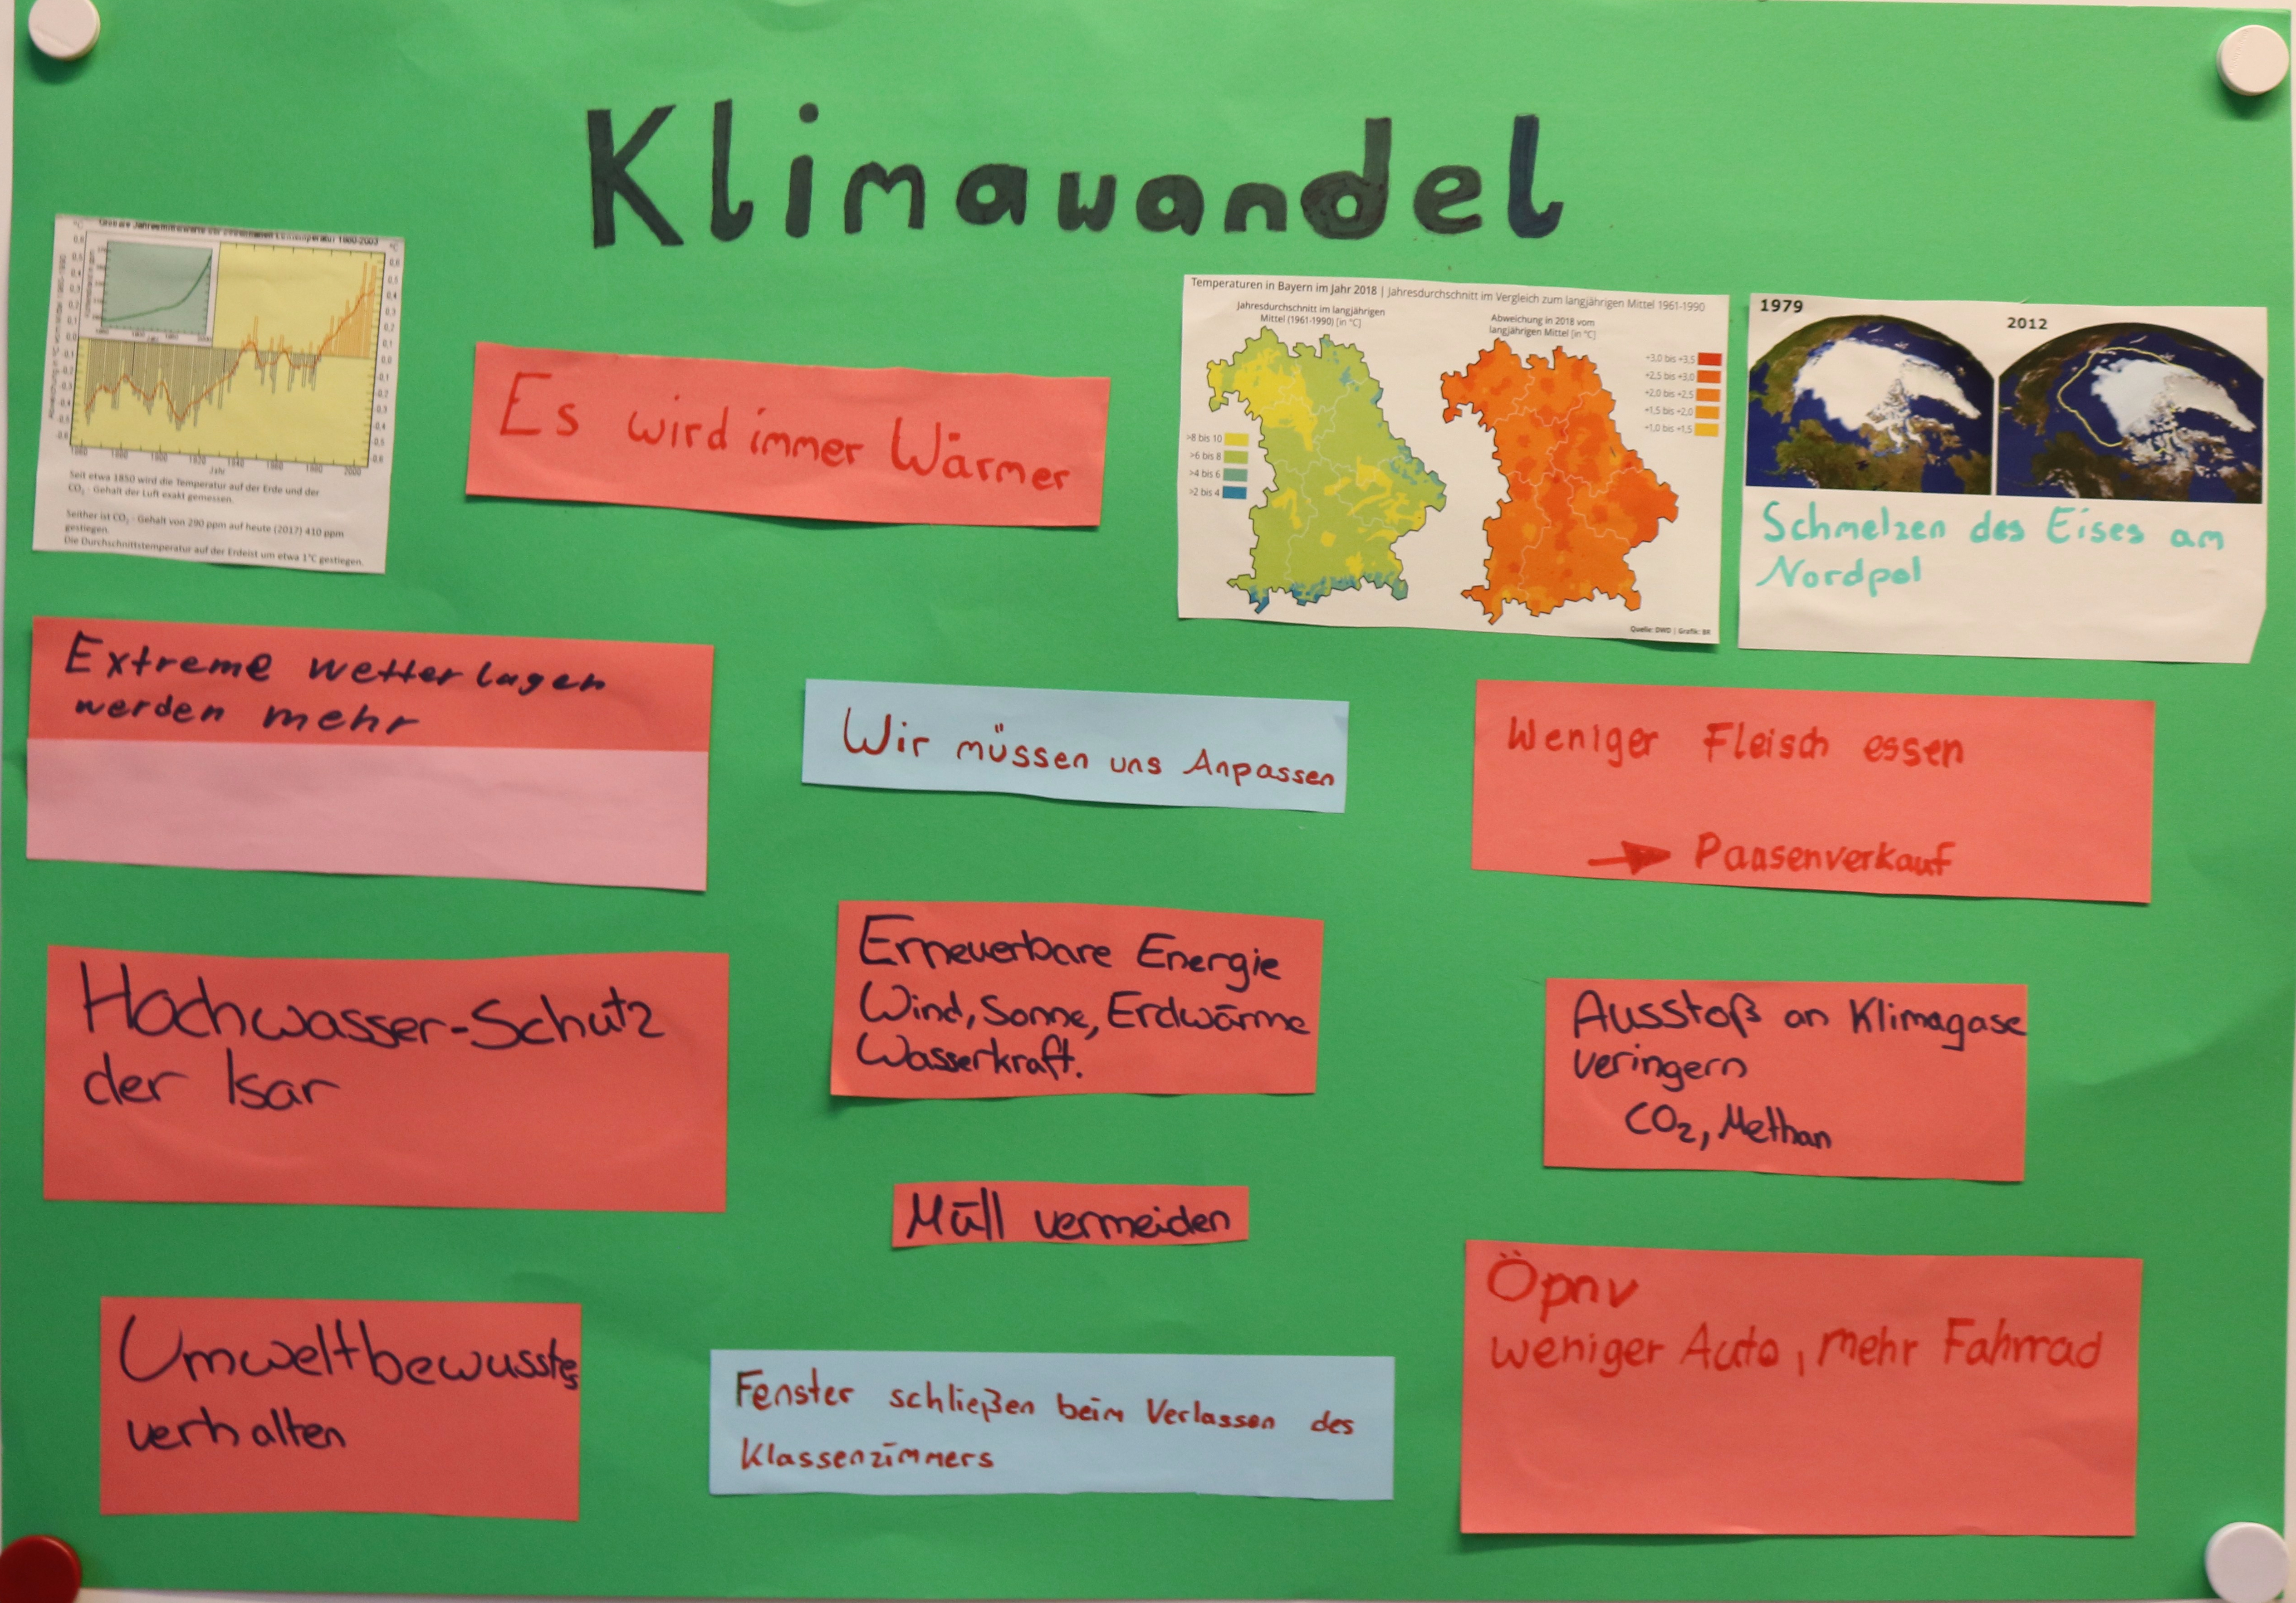 Klimawandel
0,6
0,5
0,4
0,3
0,2
0,1
0,0
-0,1
-0,2
-0,3
-0,4
-0,5
-0,6
1860
1880
1900
1920
1940
1960
1980
2000
Jahr
Seit etwa 1850 wird die Temperatur auf der Erde und der
CO₂ - Gehalt der Luft exakt gemessen.
Seither ist CO₂ - Gehalt von 290 ppm auf heute (2017) 410 ppm
gestiegen.
Die Durchschnittstemperatur auf der Erdeist um etwa 1°C gestiegen.
Es wird immer Wärmer
Temperaturen in Bayern im Jahr 2018 | Jahresdurchschnitt im Vergleich zum langjährigen Mittel 1961-1990
Jahresdurchschnitt im langjährigen
Mittel (1961-1990) [in °C]
>8 bis 10
>6 bis 8
>4 bis 6
>2 bis 4
Abweichung in 2018 vom
langjährigen Mittel [in °C]
+3,0 bis +3,5
+2,5 bis +3,0
+2,0 bis +2,5
+1,5 bis +2,0
+1,0 bis +1,5
Quelle: DWD | Grafik: BR
1979
2012
Schmelzen des Eises am
Nordpol
Extreme wetterlagen
werden mehr
Wir müssen uns Anpassen
Weniger Fleisch essen
→ Pausenverkauf
Hochwasser-Schutz
der Isar
Erneuerbare Energie
Wind, Sonne, Erdwärme
Wasserkraft.
Ausstoß an Klimagase
veringern
CO₂, Methan
Müll vermeiden
Umweltbewusstes
verhalten
Fenster schließen beim Verlassen des
Klassenzimmers
Öpnv
weniger Auto, mehr Fahrrad